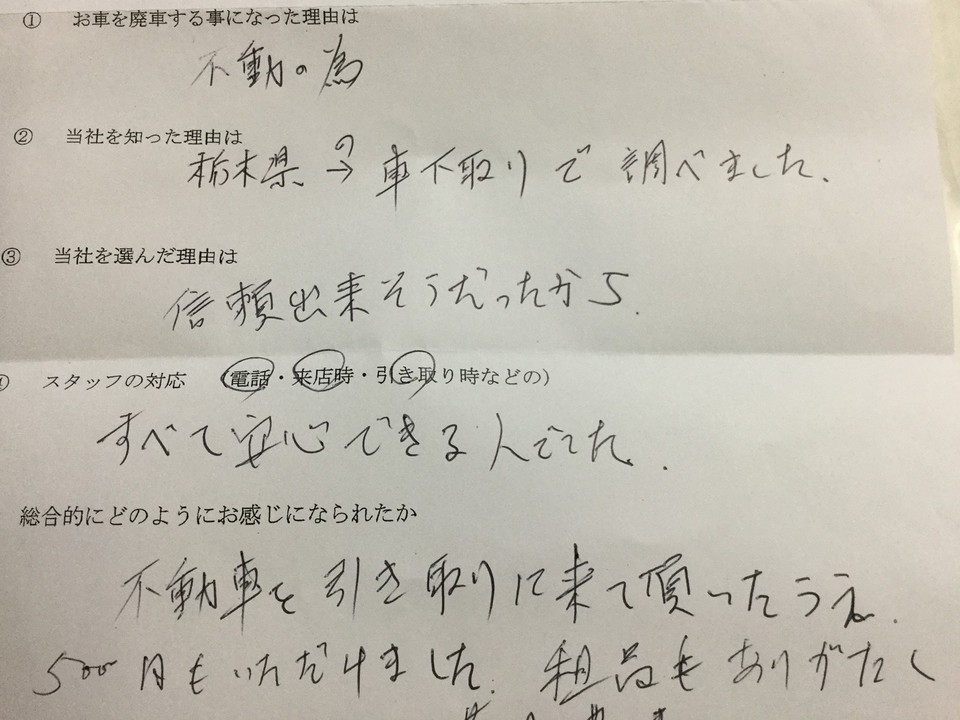 ① お車を廃車する事になった理由は
不動の為
② 当社を知った理由は
栃木県の→車下取りで調べました.
③ 当社を選んだ理由は
信頼出来そうだったから.
スタッフの対応 (電話・来店時・引き取り時などの)
すべて安心できる人でした.
総合的にどのようにお感じになられたか
不動車を引き取りに来て頂いたうえ.
500円もいただけました. 粗品もありがたく